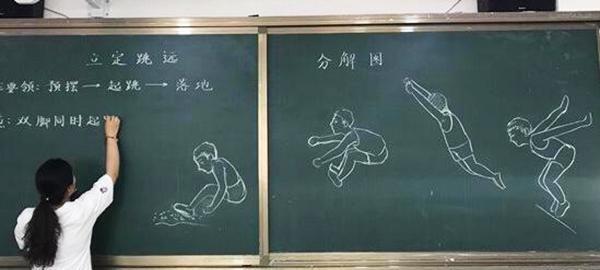 立定跳远
要领:预摆→起跳→落地
:双脚同时起
分解图